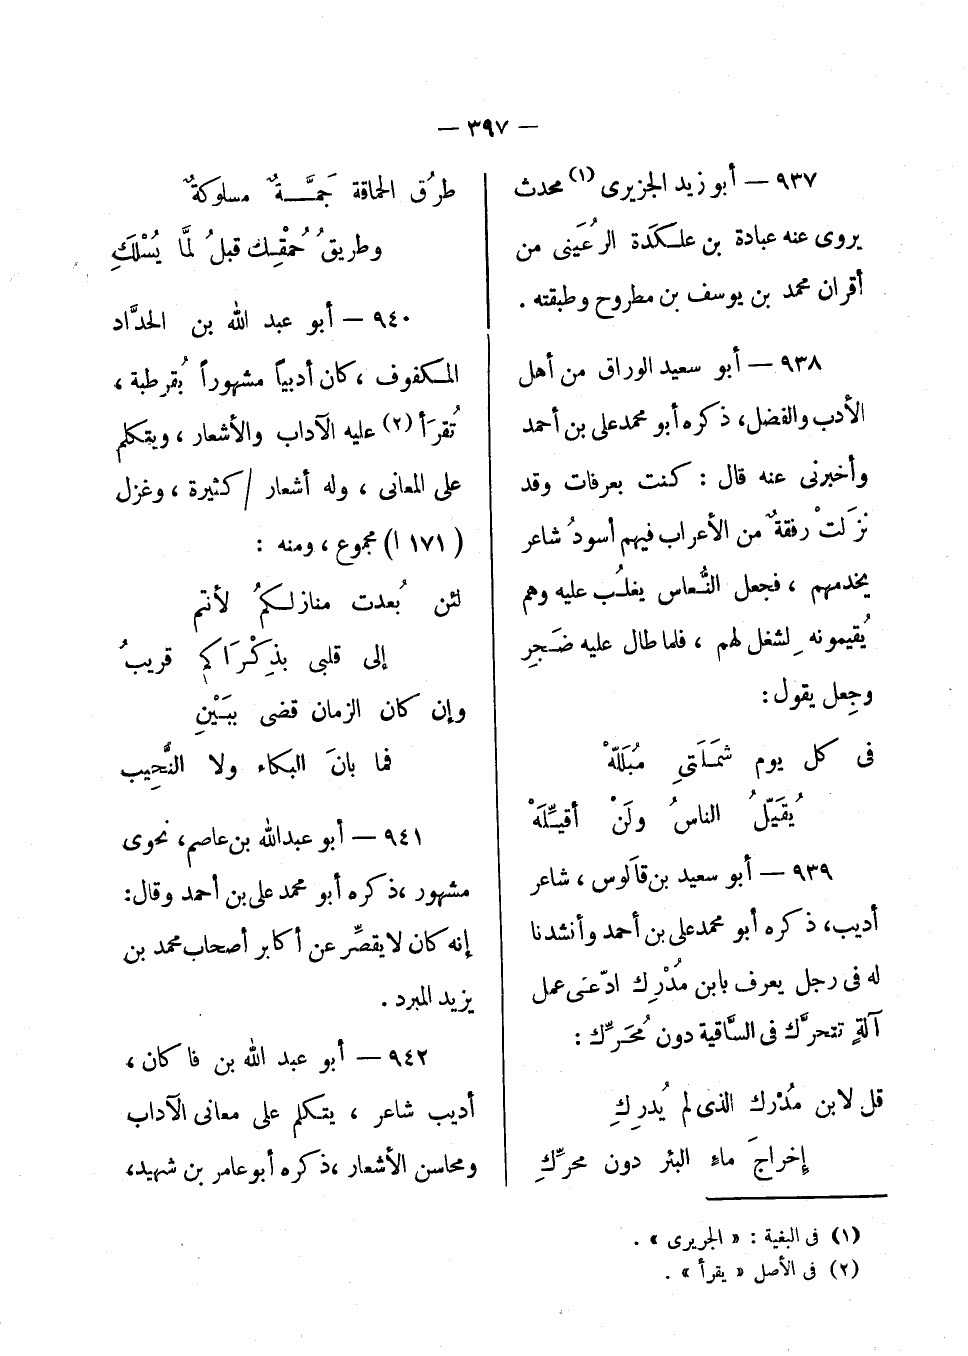 — ٣٩٧ —
٩٣٧ — أبو زيد الجزيرى (١) محدث
يروى عنه عبادة بن علـكَدَة الرُعَينى من
أقران محمد بن يوسف بن مطروح وطبقته .
٩٣٨ — أبو سعيد الوراق من أهل
الأدب والفضل، ذكره أبو محمد على بن أحمد
وأخبرنى عنه قال : كنت بعرفات وقد
نزَلتْ رفقةٌ من الأعراب فيهم أسودُ شاعر
يخدمهم ، فجعل النُّعاس يغلُب عليه وهم
يُقيمونه لِشغل لهم ، فلما طال عليه ضَجِرِ
وجعل يقول :
فى كل يوم شمَـلَتىِ مُبَلَلّهْ
يُقَيّلُ الناسُ ولَنْ أقيـِّلَهْ
٩٣٩ — أبو سعيد بن قاَلوس ، شاعر
أديب، ذكره أبو محمد على بن أحمد وأنشدنا
له فى رجل يعرف بابن مُدْرِك ادّعـَى عمل
آلةٍ تتحرَّك فى السَّاقية دون مُحَرِّك :
قل لابن مُدْرك الذى لم يُدرِكِ
إخراجَ ماءِ البئر دون محرِّكِ
طرُق الحماقة جَمَّــةٌ مسلوكةٌ
وطريقُ حُمْقِـك قبلُ لمَّا يُسْلَكِ
٩٤٠ — أبو عبد الله بن الحدَّاد
المـكفوف ، كان أديباً مشهوراً بُقرطبة ،
تُقرَأ (٢) عليه الآداب والأشعار ، ويتكلم
على المعانى ، وله أشعار / كثيرة ، وغزل
( ١٧١ ا) مجموع ، ومنه :
لئن بُعدت منازلـكمُ لأنتم
إلى قلبى بذِكْرَاكم قريبُ
وإن كان الزمان قضى ببَـيْنِ
فما بانَ البكاء ولا النَّحِيب
٩٤١ — أبو عبدالله بن عاصم، نحوى
مشهور ،ذكره أبو محمد على بن أحمد وقال:
إنه كان لايقصِّر عن أكابر أصحاب محمد بن
يزيد المبرد .
٩٤٢ — أبو عبد الله بن فاكان ،
أديب شاعر ، يتكلم على معانى الآداب
ومحاسن الأشعار ،ذكره أبو عامر بن شهيد،
(١) فى البغية : « الجريرى » .
(٢) فى الأصل « يقرأ » .